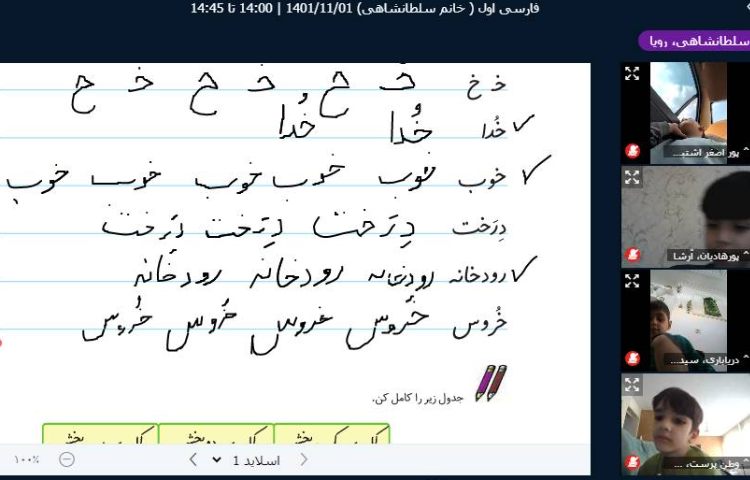 فارسی اول ( خانم سلطانشاهی) 1401/11/01 | 14:00 تا 14:45
سلطانشاهی، رویا
خ خ خ خ خ خ خ خ
خُدا خُدا خُدا
خوب خوب خوب خوب خوب خوب
دِرَخت دِرَخت دِرَخت دِرَخت
رودخانه رودخانه رودخانه رودخانه
خُروس خُروس خروس خُروس خُروس
جدول زیر را کامل کن.
اسلاید 1
۱۰۰%
پور اصغر اشتی...
پورهادیان، آرشا
دریاباری، سید...
وطن پرست، ...